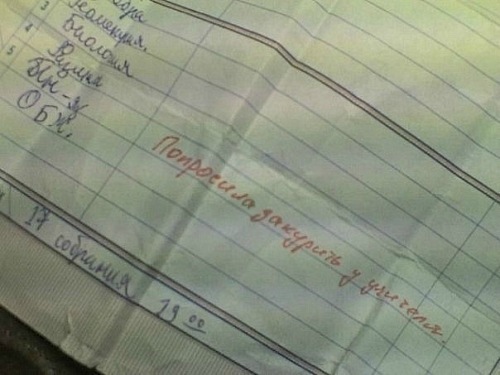 3 Геометрия.
4 Биология
5 Физика
Ин-яз
ОБЖ.
Попросила закурить у учителя.
17 собрания 19 00